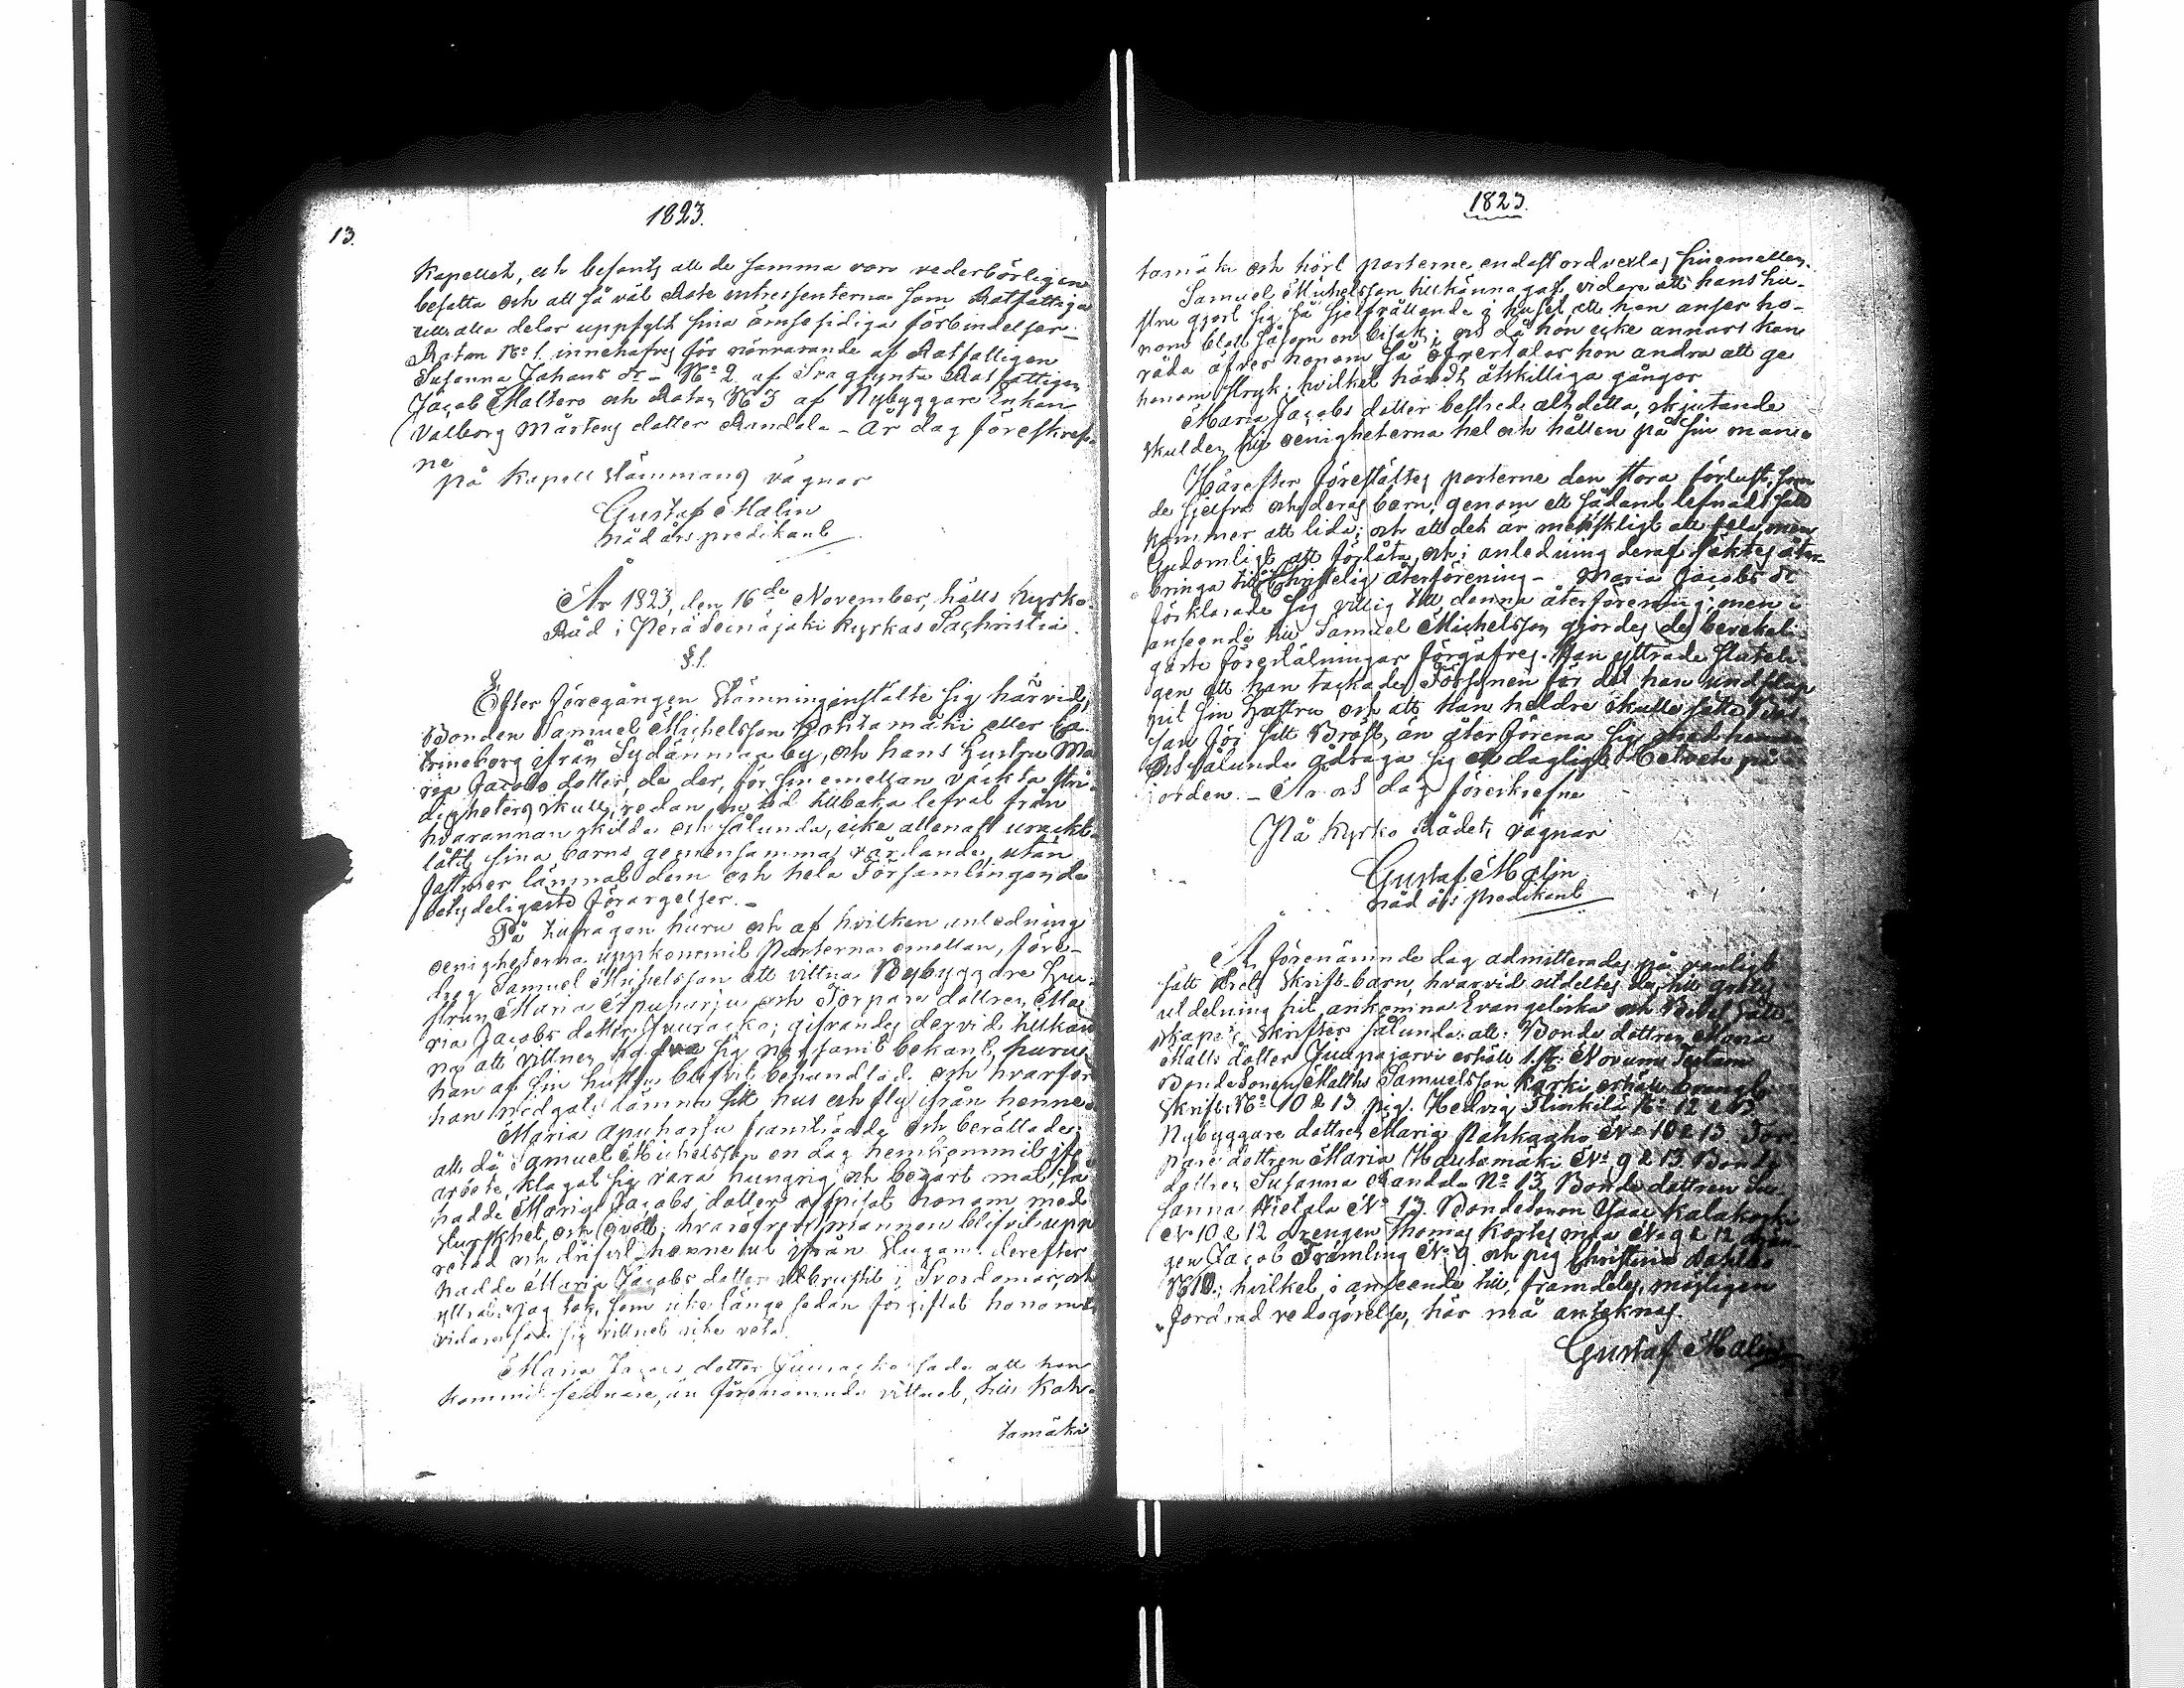 13.
1823.
Kapellet, och befants att de samma voro vederbörligen
besatta och att så väl Rote intressenterna som Rotfattiga
till alla delar uppfylt sina ömsesidiga förbindelser.
Roten No 1. innehafves för närvarande af Rotfattigen
Susanna Johans dr - No 2 af Rotfattigen
Jacob Matters och Roten No 3 af Nybyggare Enkan
Valborg Mårtens dotter Randala - År dag föreskref-
ne
på Kapell Stämmans vägnar
Gustaf Malin
nådårspredikant
År 1823, den 16de November, hålls Kyrko-
Råd i Peräseinäjoki Kyrkas Sachristia.
§.1.
Efter föregången Stämning inställte sig härvid,
Bonden Samuel Michelsson Kohtamäki eller Ca-
trineborg ifrån Sydänmaa by, och hans Hustru Ma
ria Jacobs dotter, de der, för sinemellan väckta stri-
digheters skull, redan en tid tillbaka lefvat från
hvarannan skilda och sålunda, icke allenast urackt-
låtit sina barns gemensamma vårdande, utan
fastmer lämnat dem och hela Församlingen de
betydeligaste förargelser. -
På tillfrågan huru och af hvilken anledning
oenigheterna uppkommit Parterna emellan, före-
drog Samuel Michelsson att vittna Nybyggare Hu-
strun Maria Apuharju och Torpare dottren Ma
ria Jacobs dotter gifvandes dervid tillkän
na att vittnen sig noksamt bekant, huru
han af sin hustru blifvit behandlad och hvarför
han nödgats lämna sitt hus och fly ifrån henne.
Maria Apuharju framträdde och berättade:
att då Samuel Michelsson en dag hemkommit ifr
arbete, klagat sig vara hungrig och begärt mat, så
hadde Maria Jacobs dotter afspisat honom med
Hurskhet och qvält; hvaröfver mannen blifvit upp
retad och drifvit henne ut ifrån Stugan. derefter
hadde Maria Jacobs dotter utbrustit i Svordomar, och
yttrat: Jag tok, som icke länge sedan förgiftat honom
vidare sade sig vittnet icke veta.
Maria Jacobs dotter sade att hon
kommit sednare, än förenämnde vittnet, till Koh-
tamäki
1823.
tamäki och hört parterne endast ordvexlas sinemellan.
Samuel Michelsson tillkänna gaf vidare att hans hu-
stru gjort sig så sjelfrådande i huset, att hon anser ho-
nom blott såsom en bisak; och då hon icke annars kan
råda öfver honom så öfvertalar hon andra att ge
honom stryk; hvilket händt åtskilliga gånger
Maria Jacobs dotter bestred alt detta, skjutande
skulden till oenigheterna hel och hållen på sin man.
Härefter föreställtes parterne den stora förlust, som
de sjelfva och deras barn, genom ett sådant lefnads sätt
kommer att lida; och att det är menskligt att fela men
Gudomligt att förlåta, och i anledning deraf söktes åter-
bringa till Christelig återförening - Maria Jacobs dr
förklarade sig villig till denna återförening; men i
anseende till Samuel Michelsson gjordes de bevekeli-
gaste föreställningar förgäfves. Han yttrade slutel-
gen att han tackade Försynen för det han undslup-
pit sin Hustru och att han heldre skulle sätta
för sitt Bröst, än återförena sig med henne
och sålunda ådraga sig ett dagligt helvete på
jorden. - År och dag föreskrefne
På Kyrko Rådets vägnar
Gustaf Malin
nådårs predikant
förenämnde dag admitterades på vanligt
sätt skrift-barn, hvarvid utdeltes de, till gratis
utdelning hit ankomna Evangeliska och Bibel Säll-
skapets Skrifter sålunda: att: Bonde dottren Maria
Matts dotter Juupajarvi erhölt 1. st. Novum Testam
Bonde Sonen Matths Samuelsson Karki erhölt Evangel
Skrift: No 10 & 13 pig. Hedvig No 12 & 13
Nybyggare dottren Maria No 10 & 13. Tor-
pare dottren Maria Hautamäki No 9 & 13. Bonde
dottren Susanna Randala No 13. Bonde dottren Su-
sanna Hietala No 13. Bondesonen Isaac Kalakoski
No 10 & 12 drengen Thomas Kortesmäa No 9 & 12 dren-
gen Jacob Främling No 9 och pig Christina
No 10; hvilket, i anseende till, framdeles, möjligen
fordrad redogörelse, här må antecknas.
Gustaf Malin